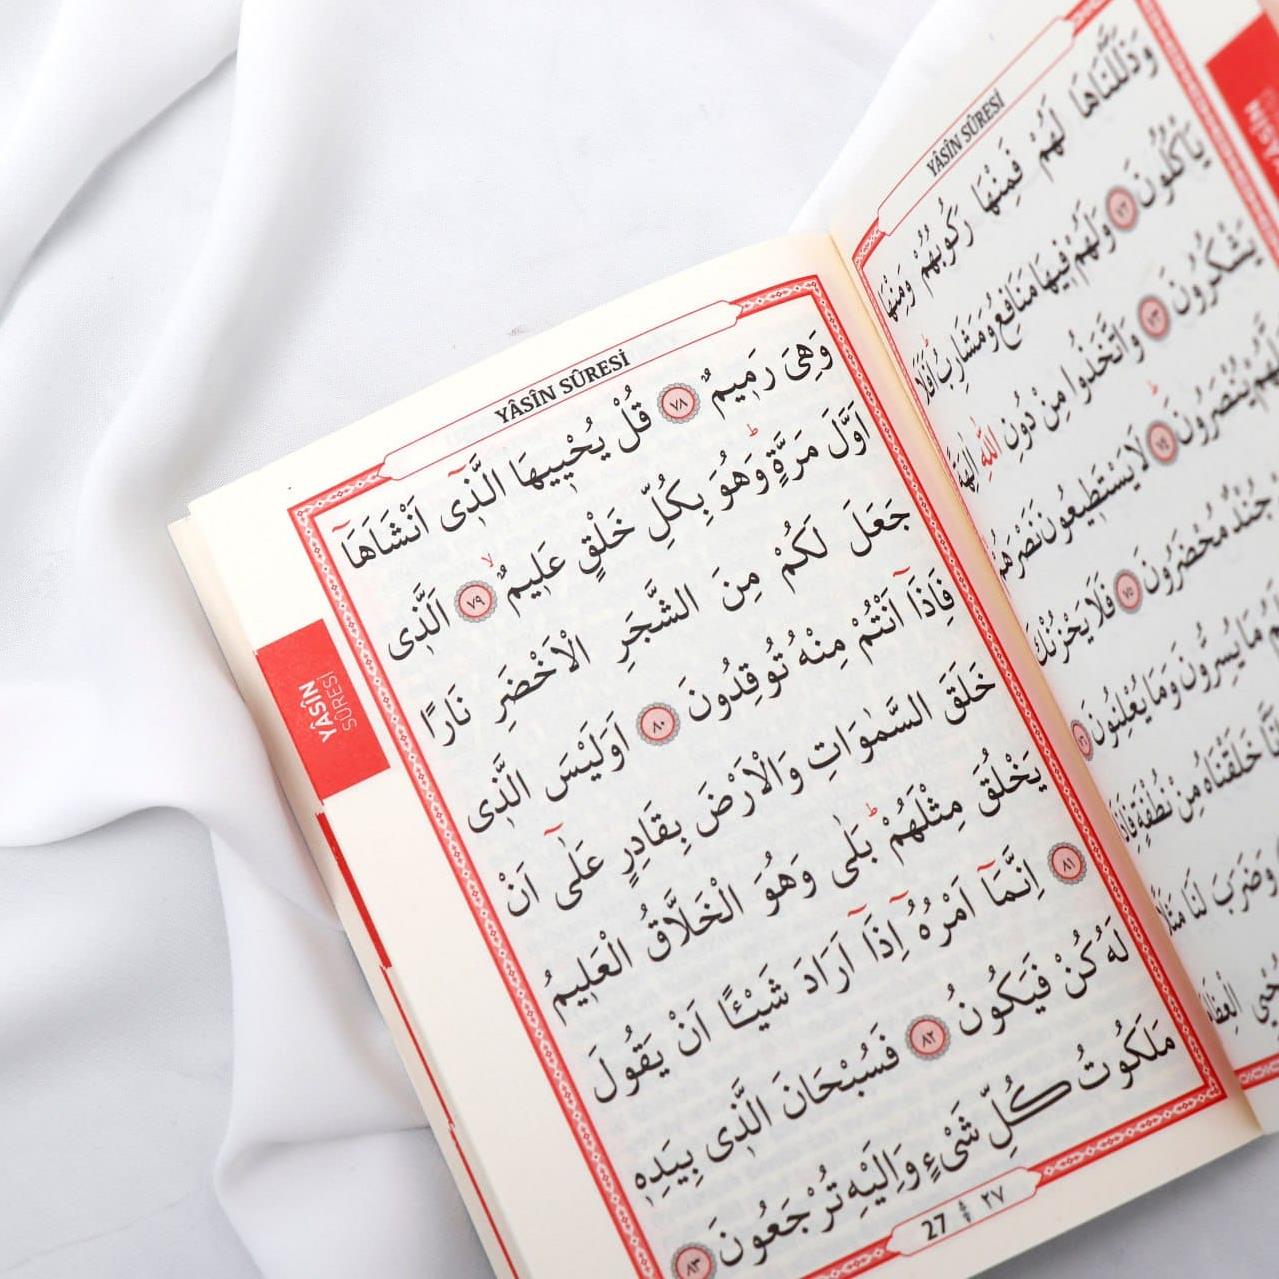 YÂSÎN SÛRESİ
وَذَلَّلْنَاهَا لَهُمْ فَمِنْهَا رَكُوبُهُمْ وَمِنْهَا
يَأْكُلُونَ ﴿٧٢﴾ وَلَهُمْ فِيهَا مَنَافِعُ وَمَشَارِبُ اَفَلَا
يَشْكُرُونَ ﴿٧٣﴾ وَاتَّخَذُوا مِنْ دُونِ اللّٰهِ اٰلِهَةً
يُنْصَرُونَ ﴿٧٤﴾ لَا يَسْتَطِيعُونَ نَصْرَهُمْ
جُنْدٌ مُحْضَرُونَ ﴿٧٥﴾ فَلَا يَحْزُنْكَ
مَا يُسِرُّونَ وَمَا يُعْلِنُونَ ﴿٧٦﴾
خَلَقْنَاهُ مِنْ نُطْفَةٍ فَاِذَا
وَضَرَبَ لَنَا مَثَلًا
يُحْيِي الْعِظَامَ
YÂSÎN SÛRESİ
وَهِيَ رَمِيمٌ ﴿٧٨﴾ قُلْ يُحْيِيهَا الَّذِٓى اَنْشَاَهَٓا
اَوَّلَ مَرَّةٍ وَهُوَ بِكُلِّ خَلْقٍ عَلِيمٌ ﴿٧٩﴾ اَلَّذِى
جَعَلَ لَكُمْ مِنَ الشَّجَرِ الْاَخْضَرِ نَارًا
فَاِذَٓا اَنْتُمْ مِنْهُ تُوقِدُونَ ﴿٨٠﴾ اَوَلَيْسَ الَّذِى
خَلَقَ السَّمٰوَاتِ وَالْاَرْضَ بِقَادِرٍ عَلٰٓى اَنْ
يَخْلُقَ مِثْلَهُمْ بَلٰى وَهُوَ الْخَلَّاقُ الْعَلِيمُ
﴿٨١﴾ اِنَّمَٓا اَمْرُهُٓ اِذَٓا اَرَادَ شَيْـًٔا اَنْ يَقُولَ
لَهُ كُنْ فَيَكُونُ ﴿٨٢﴾ فَسُبْحَانَ الَّذِى بِيَدِهِ
مَلَكُوتُ كُلِّ شَىْءٍ وَاِلَيْهِ تُرْجَعُونَ ﴿٨٣﴾
27 ٢٧
YÂSÎN
SÛRESİ